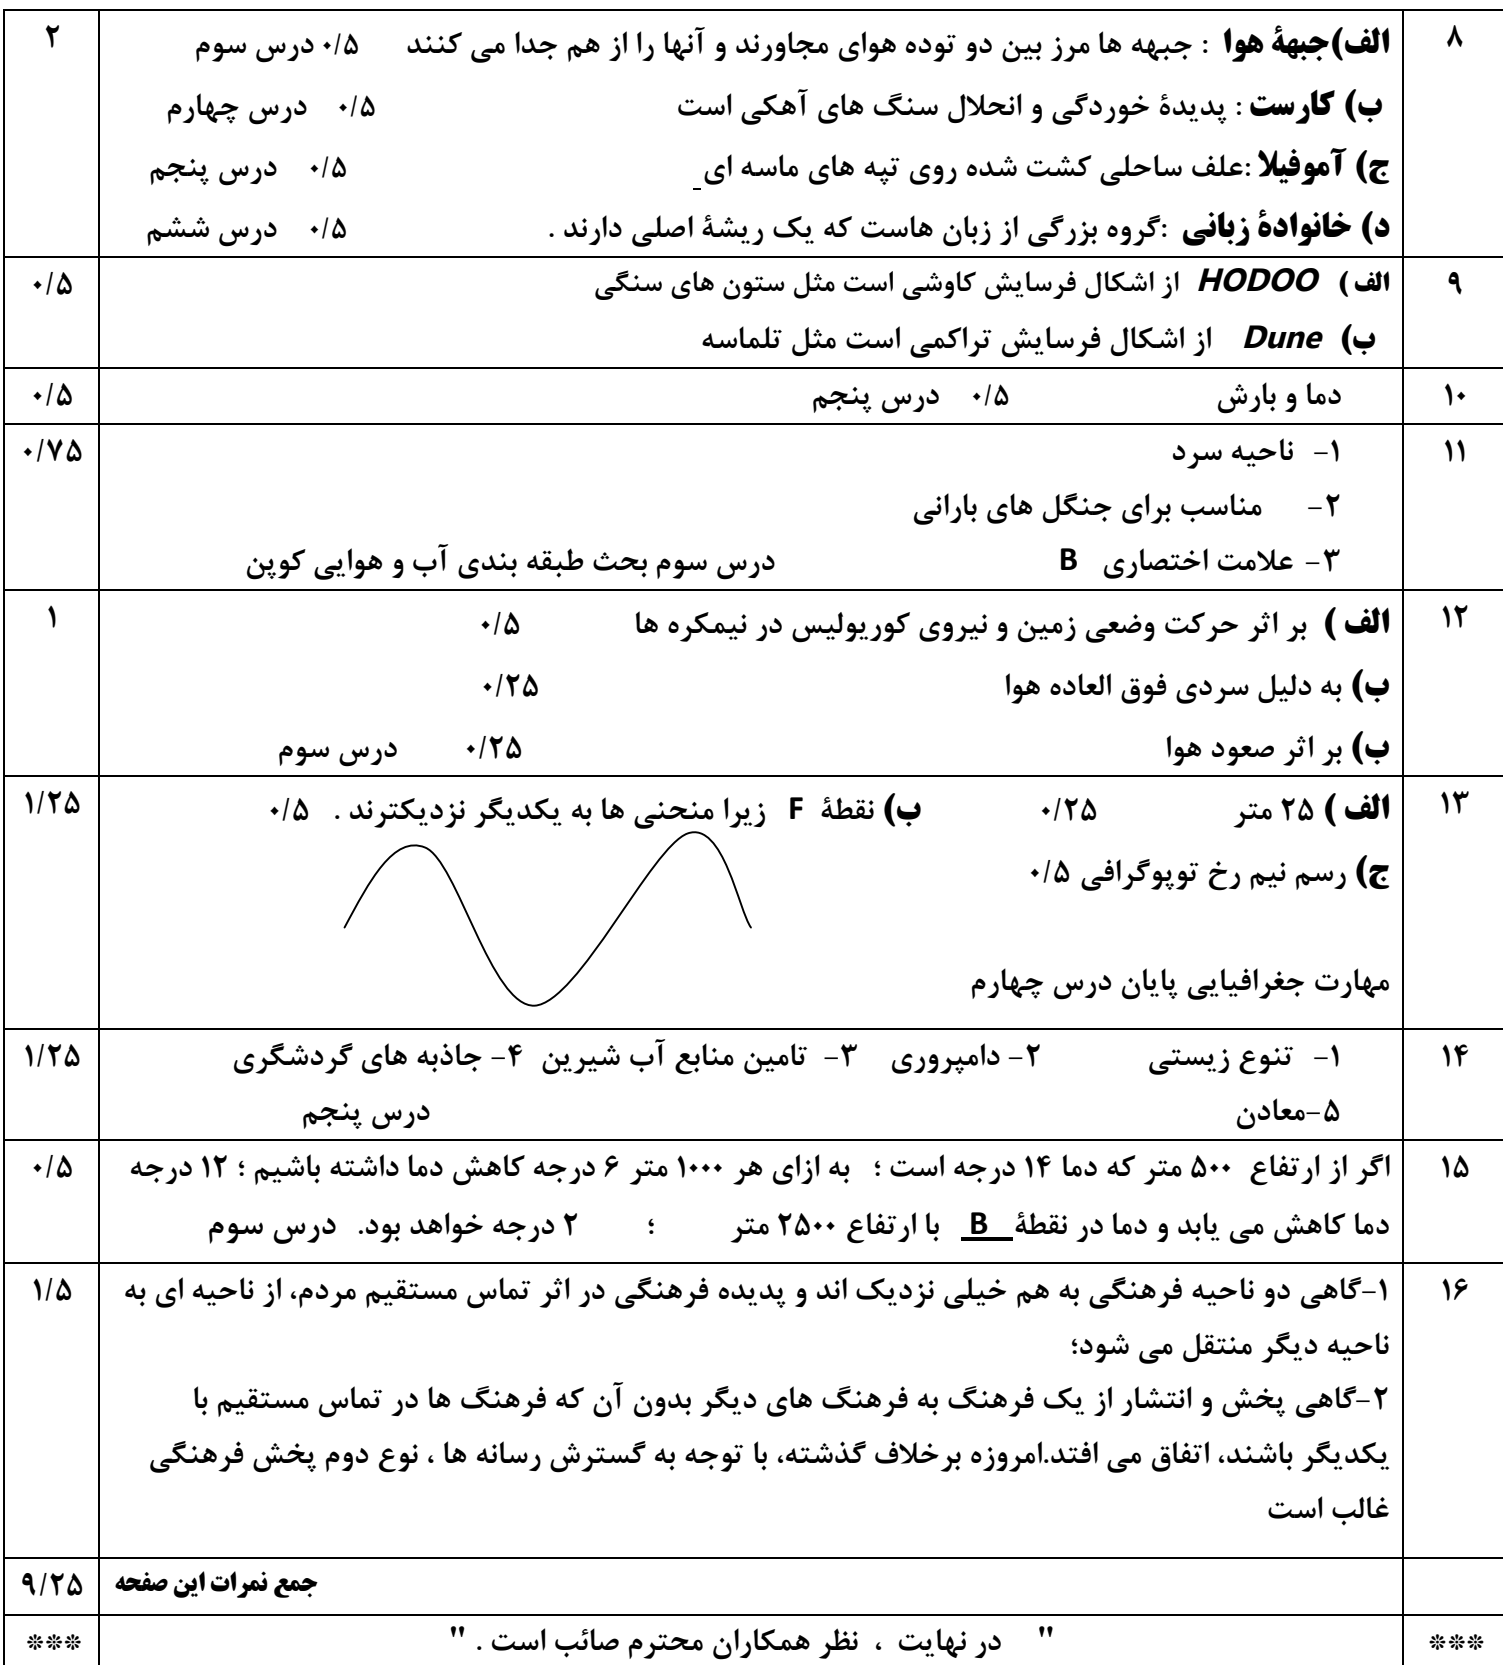 ۸ الف)جبههٔ هوا : جبهه ها مرز بین دو توده هوای مجاورند و آنها را از هم جدا می کنند ۰/۵ درس سوم ۲
ب) کارست : پدیدهٔ خوردگی و انحلال سنگ های آهکی است ۰/۵ درس چهارم
ج) آموفیلا :علف ساحلی کشت شده روی تپه های ماسه ای ۰/۵ درس پنجم
د) خانوادهٔ زبانی :گروه بزرگی از زبان هاست که یک ریشهٔ اصلی دارند . ۰/۵ درس ششم
۹ الف ) HODOO از اشکال فرسایش کاوشی است مثل ستون های سنگی ۰/۵
ب) Dune از اشکال فرسایش تراکمی است مثل تلماسه
۱۰ دما و بارش ۰/۵ درس پنجم ۰/۵
۱۱ ۱- ناحیه سرد ۰/۷۵
۲- مناسب برای جنگل های بارانی
۳- علامت اختصاری B درس سوم بحث طبقه بندی آب و هوایی کوپن
۱۲ الف ) بر اثر حرکت وضعی زمین و نیروی کوریولیس در نیمکره ها ۰/۵ ۱
ب) به دلیل سردی فوق العاده هوا ۰/۲۵
ب) بر اثر صعود هوا ۰/۲۵ درس سوم
۱۳ الف ) ۲۵ متر ۰/۲۵ ب) نقطهٔ F زیرا منحنی ها به یکدیگر نزدیکترند . ۰/۵ ۱/۲۵
ج) رسم نیم رخ توپوگرافی ۰/۵
مهارت جغرافیایی پایان درس چهارم
۱۴ ۱- تنوع زیستی ۲- دامپروری ۳- تامین منابع آب شیرین ۴- جاذبه های گردشگری ۱/۲۵
۵-معادن درس پنجم
۱۵ اگر از ارتفاع ۵۰۰ متر که دما ۱۴ درجه است ؛ به ازای هر ۱۰۰۰ متر ۶ درجه کاهش دما داشته باشیم ؛ ۱۲ درجه ۰/۵
دما کاهش می یابد و دما در نقطهٔ B با ارتفاع ۲۵۰۰ متر ؛ ۲ درجه خواهد بود. درس سوم
۱۶ ۱-گاهی دو ناحیه فرهنگی به هم خیلی نزدیک اند و پدیده فرهنگی در اثر تماس مستقیم مردم، از ناحیه ای به ۱/۵
ناحیه دیگر منتقل می شود؛
۲-گاهی پخش و انتشار از یک فرهنگ به فرهنگ های دیگر بدون آن که فرهنگ ها در تماس مستقیم با
یکدیگر باشند، اتفاق می افتد.امروزه برخلاف گذشته، با توجه به گسترش رسانه ها ، نوع دوم پخش فرهنگی
غالب است
جمع نمرات این صفحه ۹/۲۵
*** " در نهایت ، نظر همکاران محترم صائب است . " ***